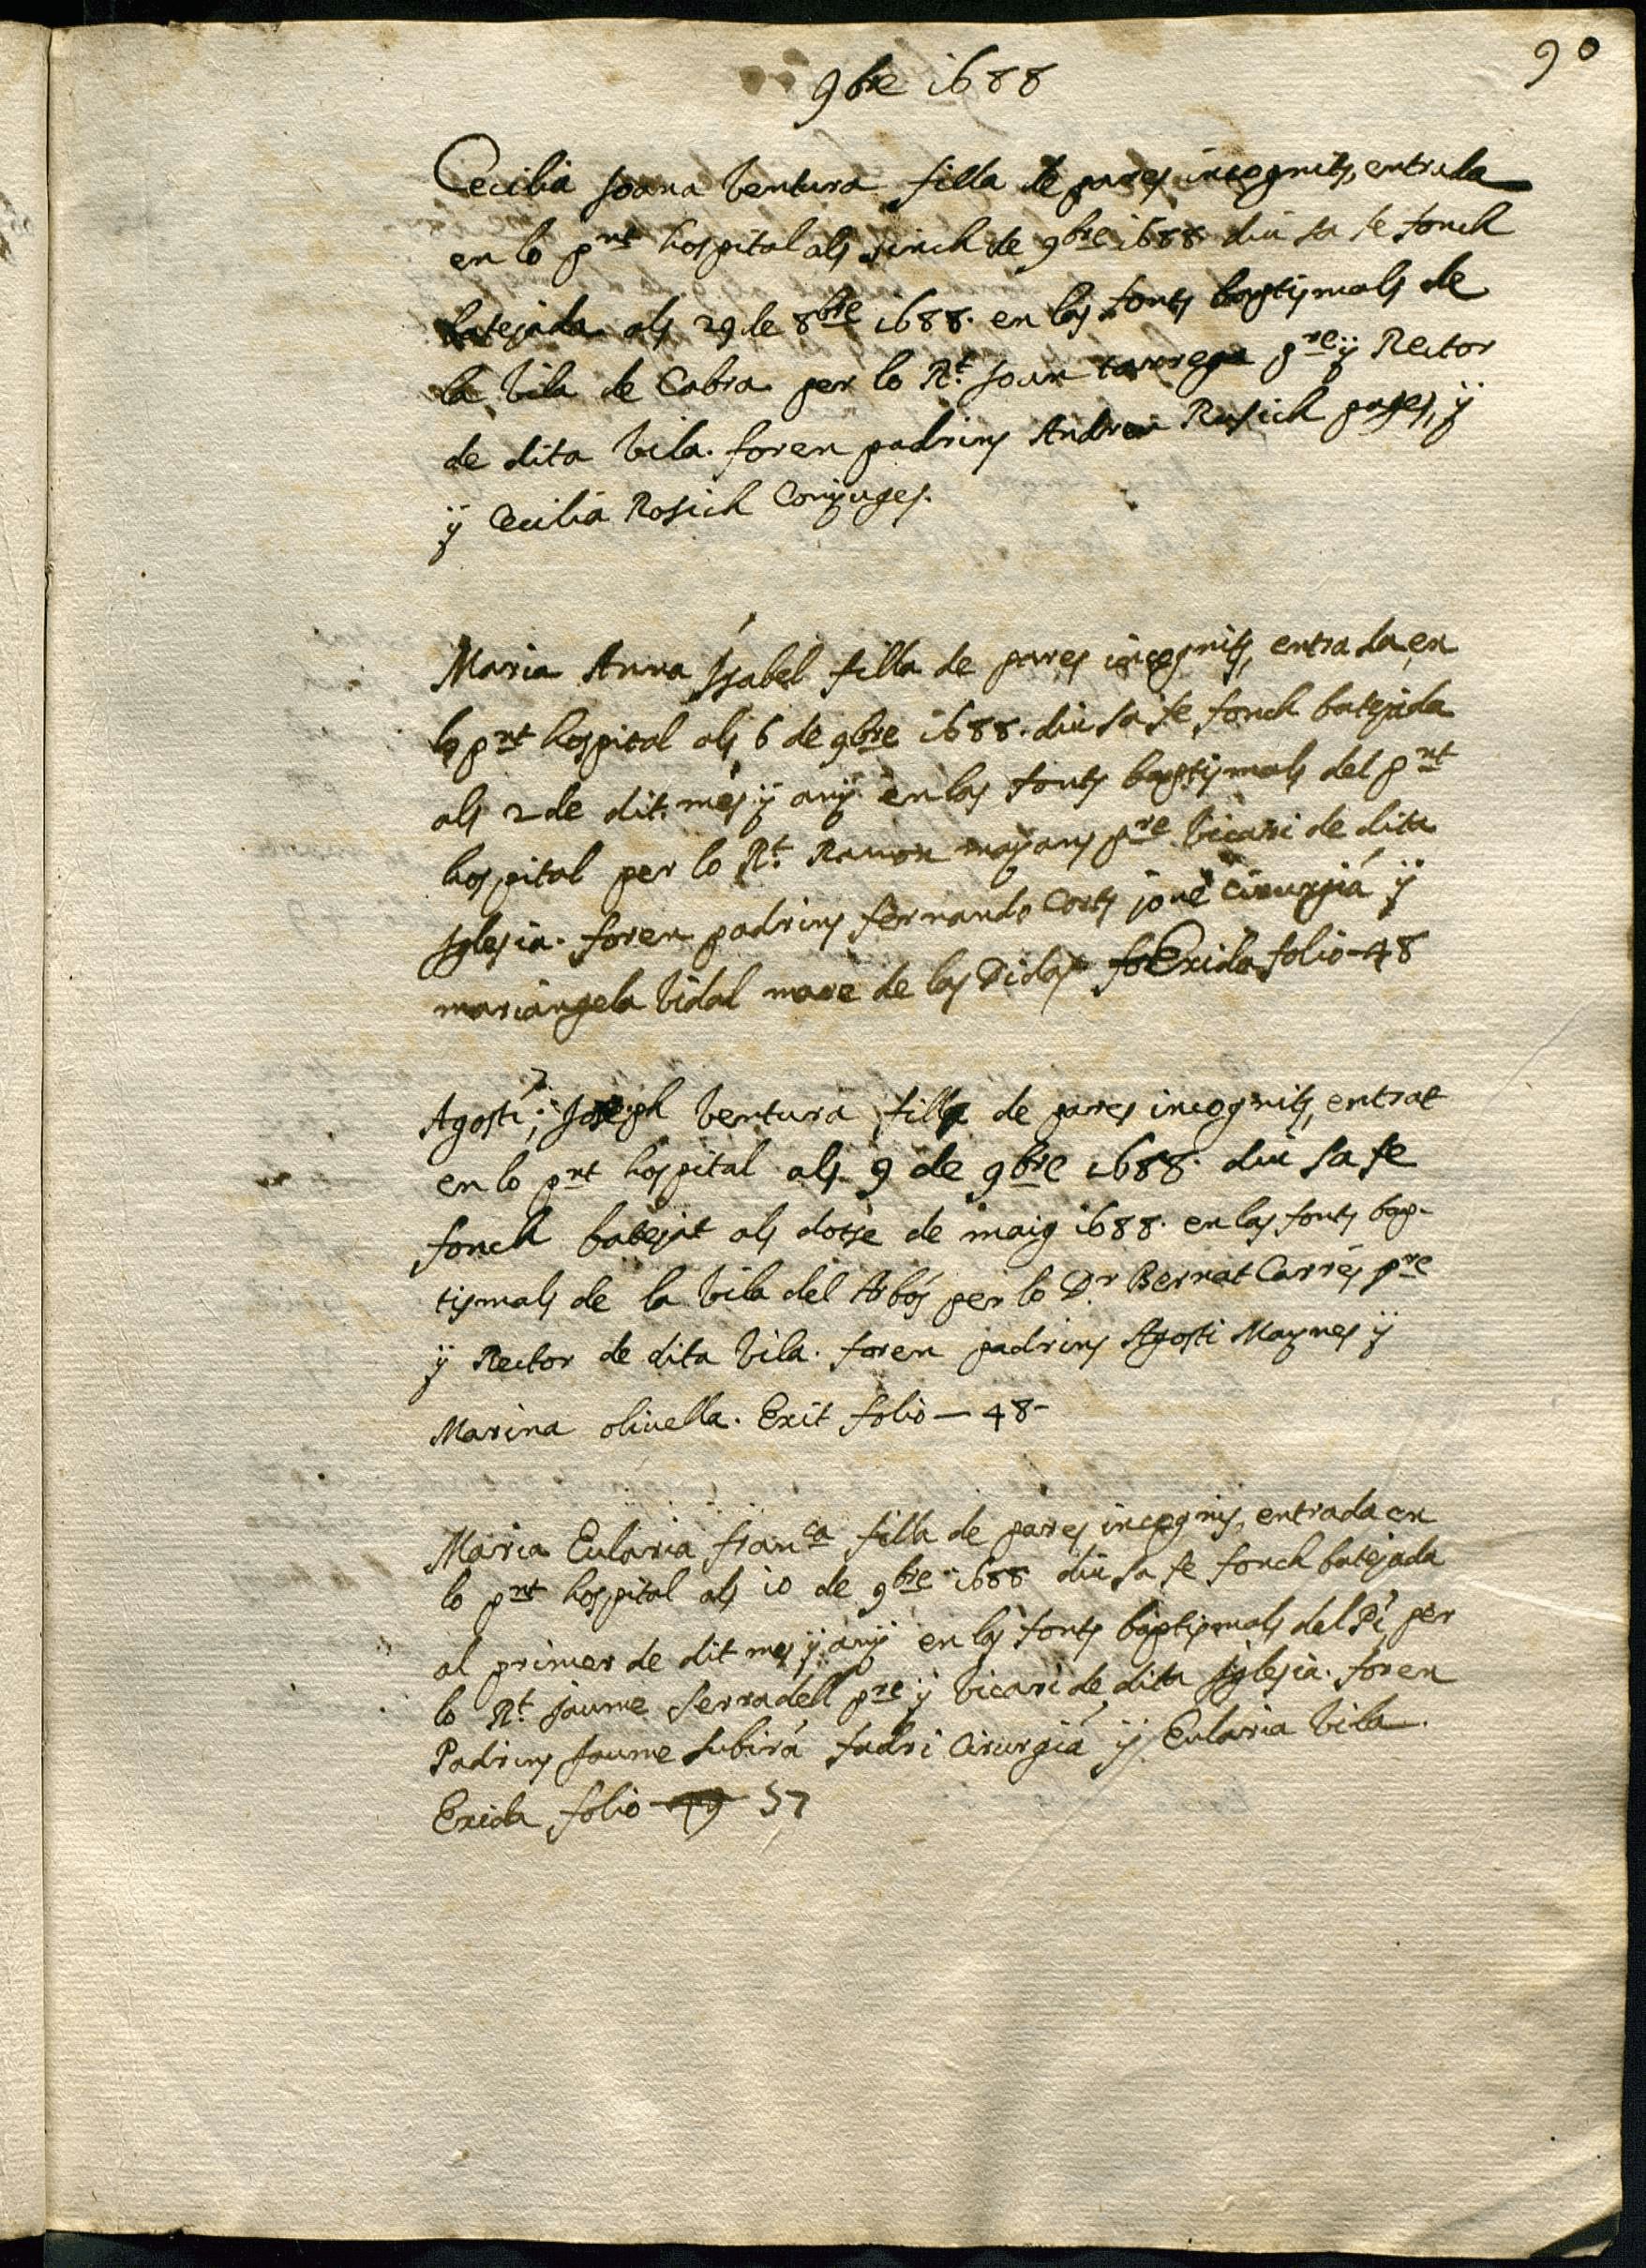 90
9bre 1688
Cecilia Joana Ventura filla de pares incognits, entrada
en lo pnt hospital als sinch de 9bre 1688 diu sa fe fonch
batejada als 29 de 8bre 1688. en las fonts baptismals de
la vila de Cabra per lo Rt. Joan tarrega pre ÿ Rector
de dita vila. foren padrins Andreu Rosich pages, ÿ
ÿ Cecilia Rosich Conjuges.
Maria Anna Isabel filla de pares incognits, entrada en
lo pnt hospital als 6 de 9bre 1688. diu sa fe fonch batejada
als 2 de dit. mes ÿ anÿ en las fonts baptismals del pnt
hospital per lo Rt. Ramon maÿans pre Vicari de dita
Iglesia. foren padrins fernando Corts jove Cirurgiá ÿ
mariangela Vidal mare de las Didas Exida folio - 48
Agosti, Joseph Ventura fill de pares incognits, entrat
en lo pnt hospital als 9 de 9bre 1688. diu sa fe
fonch batejat als dotse de maig 1688. en las fonts bap-
tismals de la vila del Arbós per lo Dr. Bernat Carrés pre
ÿ Rector de dita vila. foren padrins Agosti Maynes ÿ
Marina olivella. Exit folio — 48-
Maria Eularia franca filla de pares incognis, entrada en
lo pnt hospital als 10 de 9bre 1688 diu sa fe fonch batejada
al primer de dit mes ÿ anÿ en las fonts baptismals del Pi, per
lo Rt. jaume Serradell pre ÿ Vicari de dita Iglesia. foren
Padrins Jaume Subirá fadri Cirurgiá ÿ Eularia Vila.
Exida folio 49 57